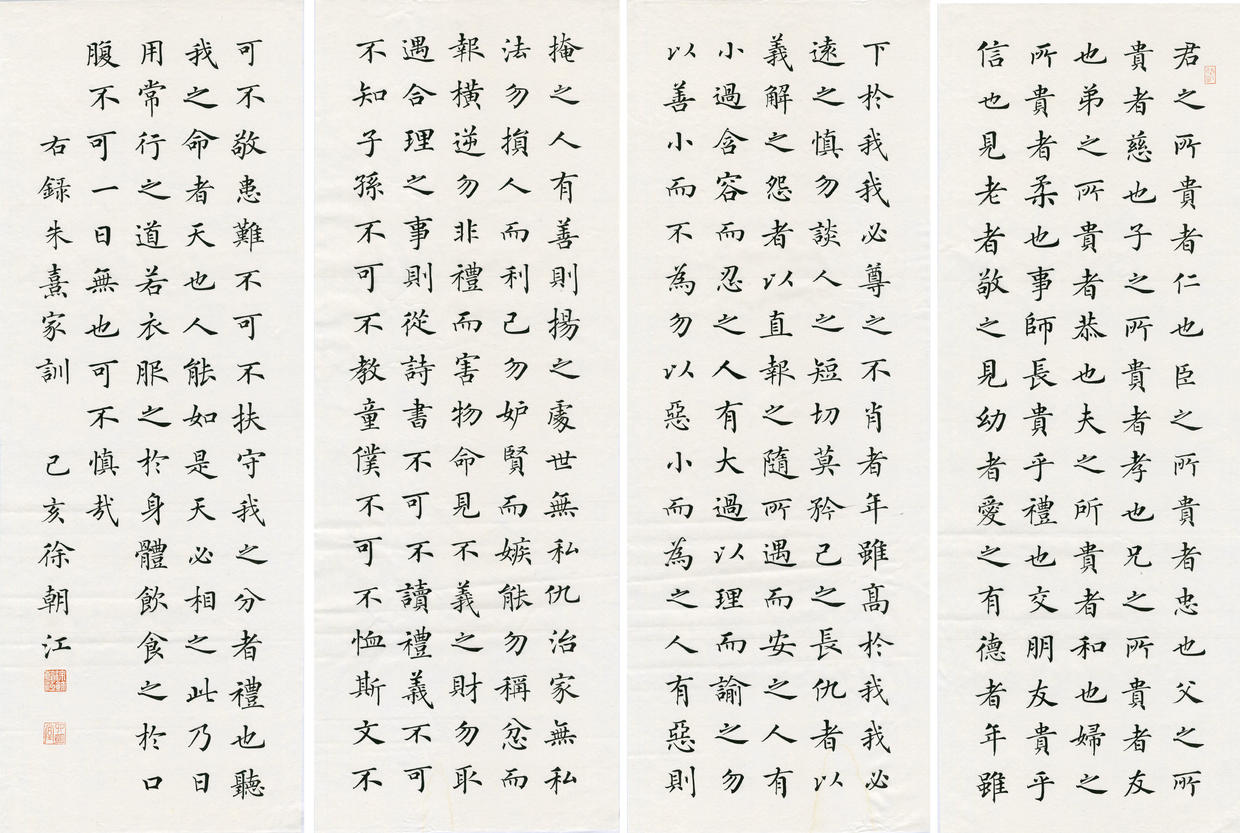 君之所貴者仁也臣之所貴者忠也父之所
貴者慈也子之所貴者孝也兄之所貴者友
也弟之所貴者恭也夫之所貴者和也婦之
所貴者柔也事師長貴乎禮也交朋友貴乎
信也見老者敬之見幼者愛之有德者年雖
下於我我必尊之不肖者年雖髙於我我必
遠之慎勿談人之短切莫矜己之長仇者以
義解之怨者以直報之隨所遇而安之人有
小過含容而忍之人有大過以理而諭之勿
以善小而不為勿以惡小而為之人有惡則
掩之人有善則揚之處世無私仇治家無私
法勿損人而利己勿妒賢而嫉能勿稱忿而
報橫逆勿非禮而害物命見不義之財勿取
遇合理之事則從詩書不可不讀禮義不可
不知子孫不可不教童僕不可不恤斯文不
可不敬患難不可不扶守我之分者禮也聽
我之命者天也人能如是天必相之此乃日
用常行之道若衣服之於身體飲食之於口
腹不可一日無也可不慎哉
右録朱熹家訓 己亥徐朝江